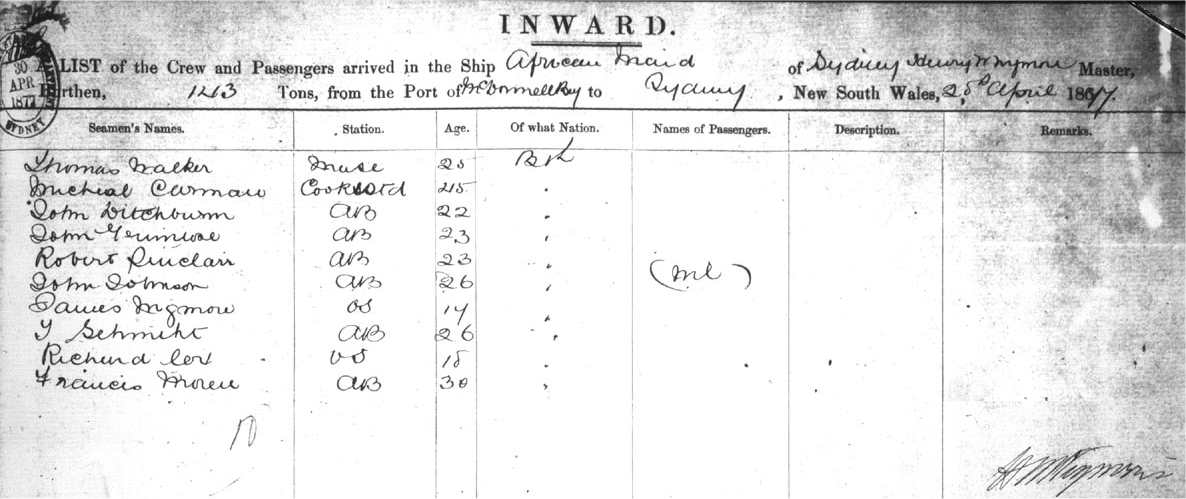 INWARD.
30
APR
1877
SYDNEY
A LIST of the Crew and Passengers arrived in the Ship African Maid of Sydney Henry Master,
Burthen, Tons, from the Port of McDonnell Bay to Sydney, New South Wales, April 1877.
Seamen's Names. Station. Age. Of what Nation. Names of Passengers. Description. Remarks.
Thomas Walker 25
Micheal Carman Cook & Std 45
John Ditchburn AB 22
John AB 23
Robert Sinclair AB 23
John Johnson AB 26 (nil)
James OS
T Schmiht AB 26
Richard OS 18
Francis AB 30
10